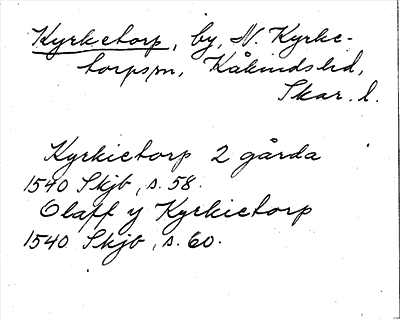 Kyrketorp, by, N. Kyrke-
torps sn, Kåkinds hd,
Skar. l.
Kyrkietorp 2 gårda
1540 Skjb, s. 58.
Olaff y Kyrkietorp
1540 Skjb, s. 60.